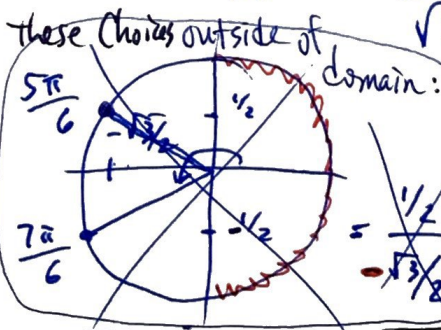 these Choices outside of
domain:
√
5π/6
1/2
-√3/2
7π/6
-1/2
= 1/2 / -√3/2